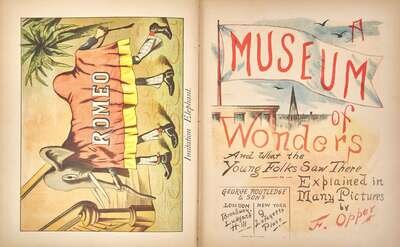 ROMEO
Imitation Elephant.
A
MUSEUM
of
Wonders
And What the
Young Folks Saw There
Explained in
Many Pictures
by
F. Opper
GEORGE ROUTLEDGE
& SONS
LONDON
Broadway,
Ludgate
Hill
NEW YORK
9
Lafayette
Place